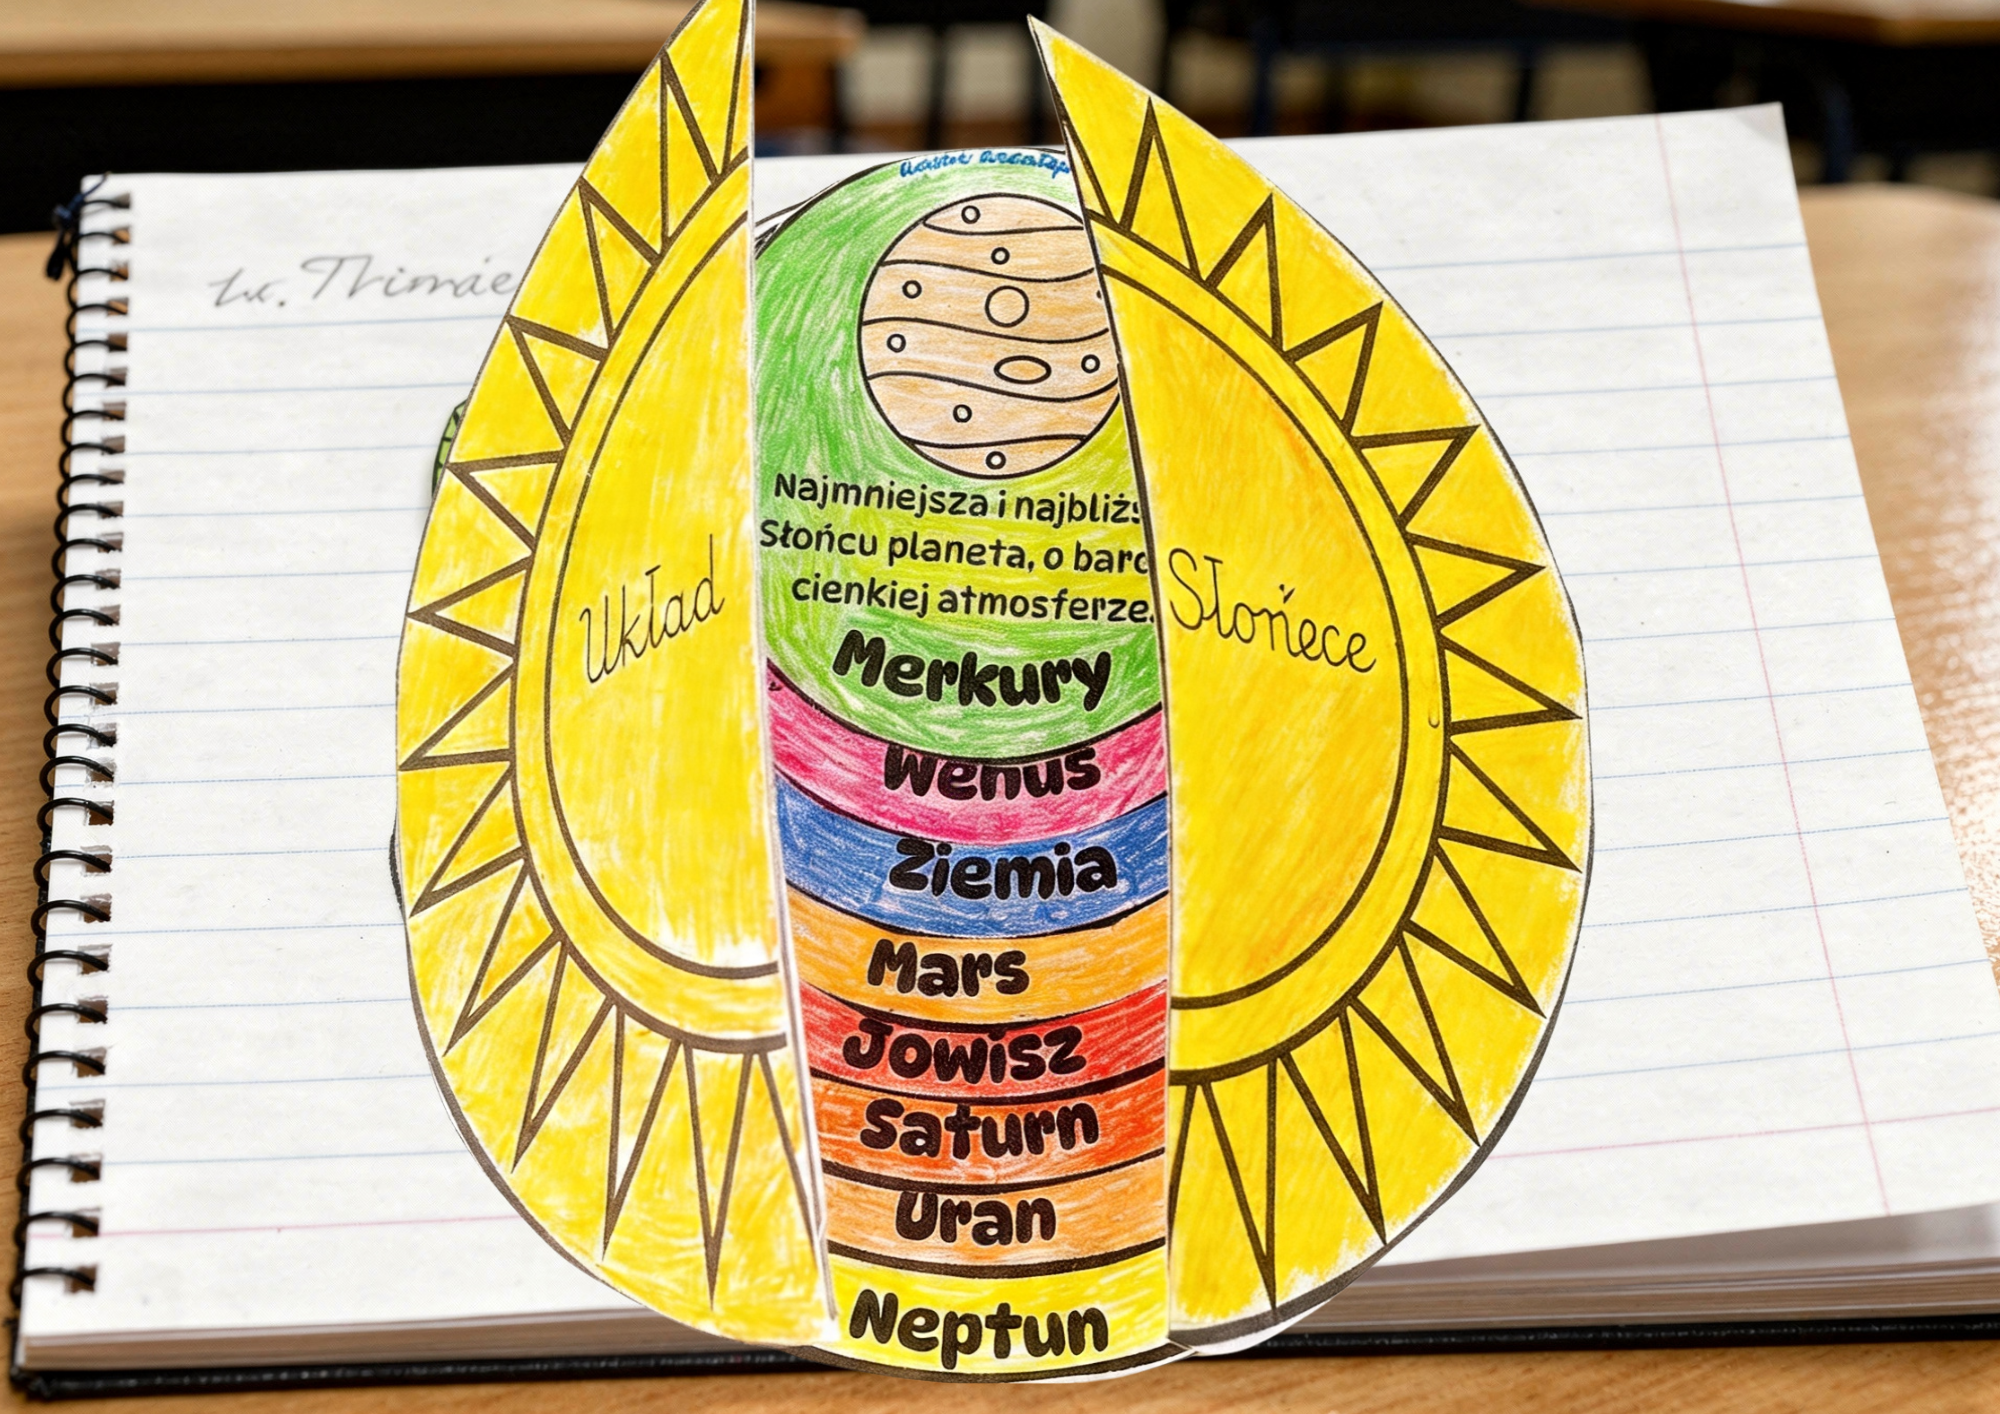 Układ
Słońece
Najmniejsza i najbliżs
Słońcu planeta, o bard
cienkiej atmosferze.
Merkury
Wenus
Ziemia
Mars
Jowisz
Saturn
Uran
Neptun